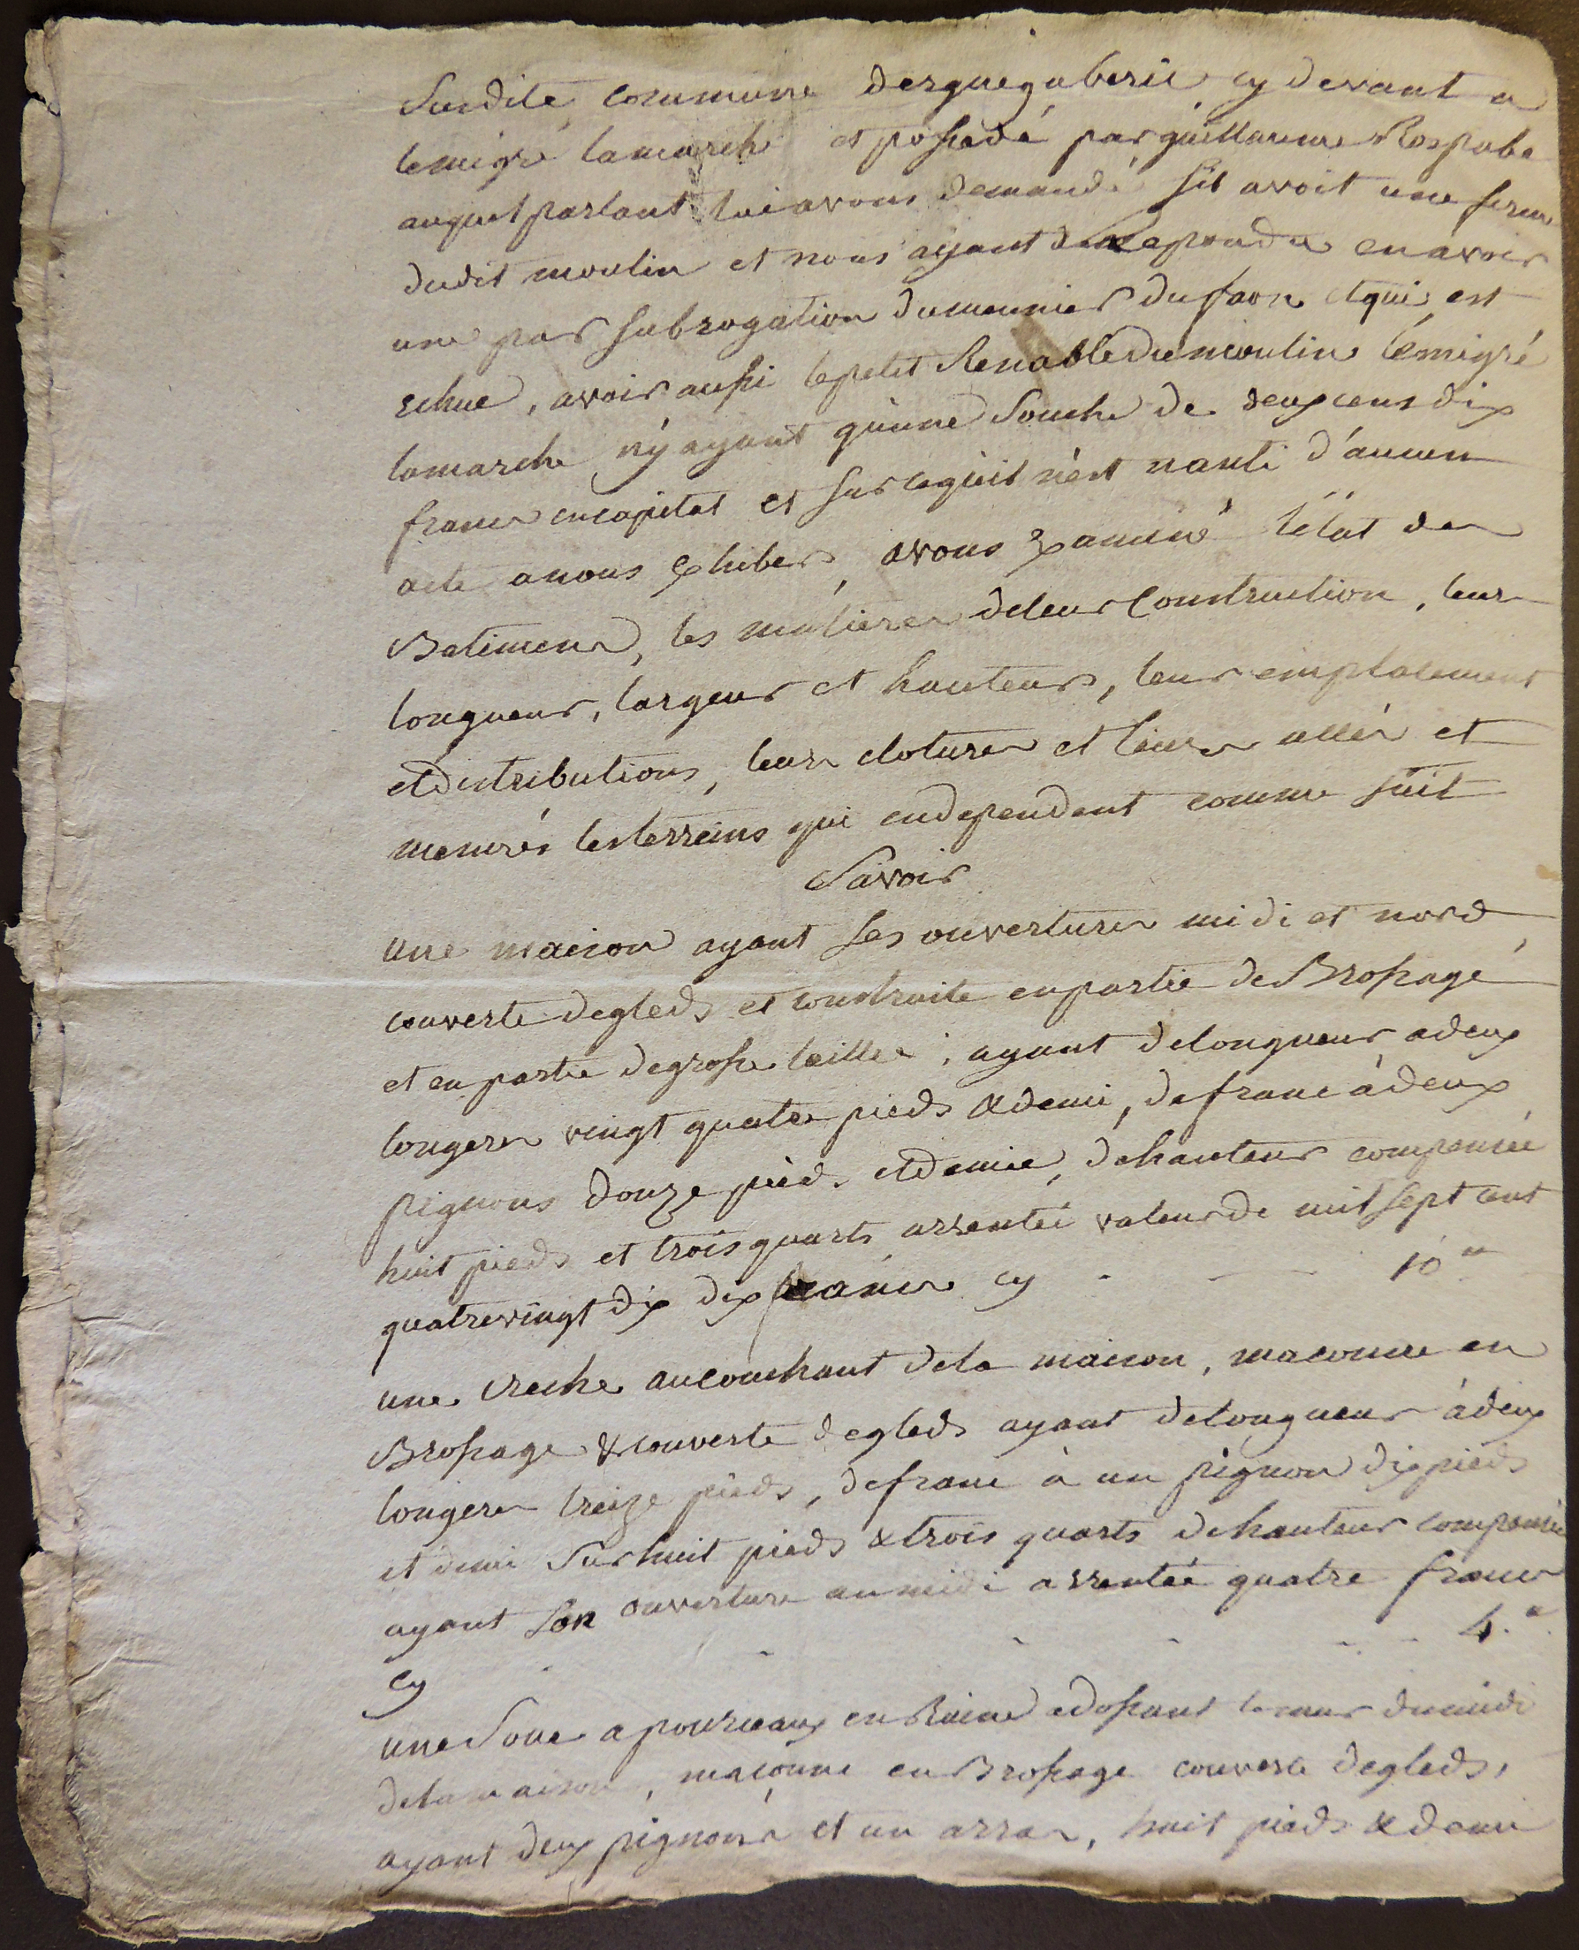 Susdite commune d'ergué gaberic cy devant a
lemigré lamarche et possedé par guillaume Rospabe
auquel parlant lui avons demandé sil avoit une ferme
dudit moulin et nous ayant repondu en avoir
une par subrogation du meunier du faou et qui est
echue, avoir aussi le petit Renable du moulin lémigré
lamarche n'y ayant qu'une souche de deux cens dix
francs en capital et sur ce qu'il n'est nanti d'aucun
acte a nous exhiber, avons examiné l'état des
Batimens, les matieres de leur Construction, leurs
longueur, largeur et hauteurs, leur emplacement
et distributions, leurs clotures et leurs allés et
mesurés les terreins qui en dependent comme suit
Savoir
une maison ayant ses ouvertures midi et nord,
couverte de gleds et construite en partie de Brossage
et en partie de grosse taille, ayant de longueur a deux
longeres vingt quatre pieds & demi, de franc à deux
pignons douze pieds et demie, de hauteur compensée
huit pieds et trois quarts arrentée valeur de mil sept cent
quatre vingt dix dix francs cy - - 10 ᶠᶠ
une creche au couchant de la maison, maconne en
Brossage & couverte de gleds ayant de longueur à deux
longeres treize pieds, de franc à un pignon dix pieds
et demi sur huit pieds & trois quarts de hauteur compensée
ayant son ouverture au midi arrentée quatre francs
cy - - - - - 4.ᶠ
une soue a pourceaux en Ruine adossant le mur du midi
de la maison, maçonne en Brossage couverte de gleds,
ayant deux pignons et un arrar, huit pieds & demi